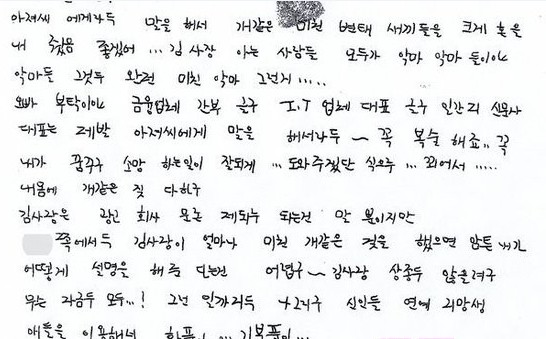 아저씨 에게라두 말을 해서 개같은 미친 변태 새끼들을 크게 혼을
내 줬음 좋겠어 ... 김 사장 아는 사람들 모두가 악마 악마 들이야
악마들 그것두 완전 미친 악마 그런거 .....
오빠 부탁이야 금융업체 간부 글구 I.T 업체 대표 글구 일간지 신문사
대표는 제발 아저씨에게 말을 해서라두 ~ 꼭 복수 해죠.. 꼭
내가 꿈꾸구 소망 하는일이 잘되게 ... 도와주겠단 식으루 ... 꾀어서 .....
내몸에 개같은 짓 다하구
김사장은 광고 회사 문은 제되루 되는건 말 뿐이지만
쪽에서두 김사장이 얼마나 미친 개같은 짓을 했으면 암튼 내가
어떻게 설명을 해 주 어렵구 ~ 김사장 상종두 않을려구
무슨 자금두 모두...! 그런 일까리두 신인들 연예 지망생
애들을 이용해서 ...